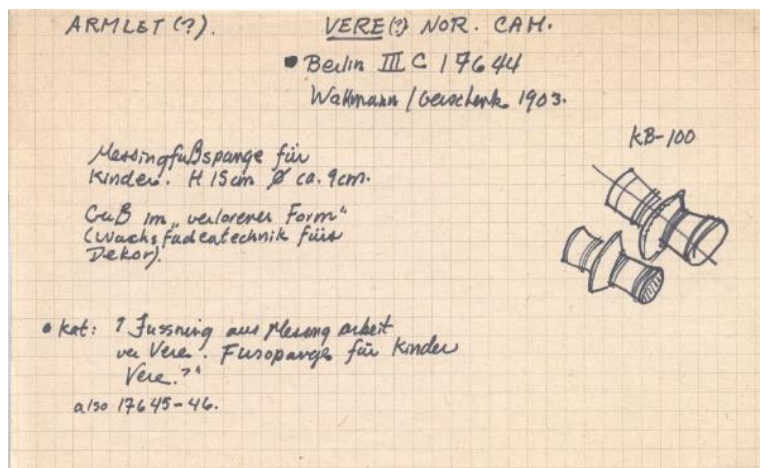 ARMLET (?).
VERE (?) NOR. CAM.
• Berlin III C 17644
Waßmann / Geschenk 1903.
KB-100
Messingfußspange für
Kinder. H 15cm Ø ca. 9cm.
Guß im „verlorener Form“
(Wachsfadentechnik fürs
Dekor).
• Kat: ? Fussring aus Messing arbeit
Vere. Fusspange für Kinder
Vere. ?“
also 17645-46.